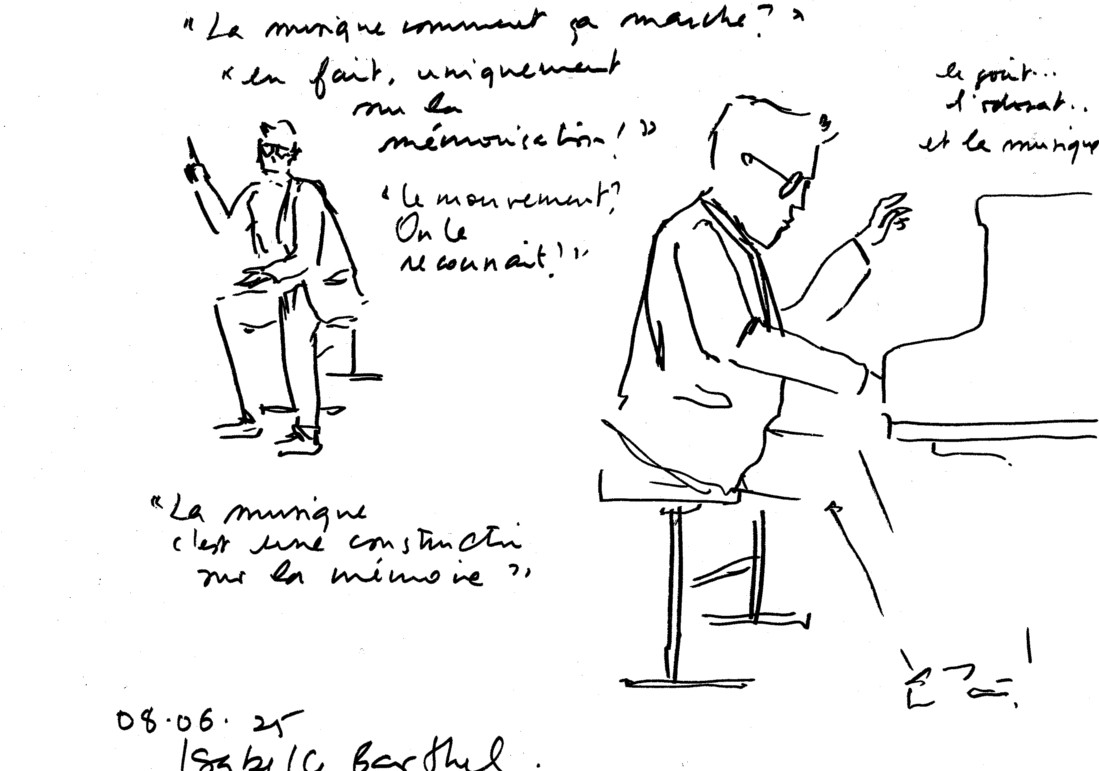 "La musique comment ça marche ? "
"en fait, uniquement
sur la
mémorisation ! "
le goût...
l'odorat..
et la musique
"le mouvement ?
On le
reconnait ! "
"La musique
c'est une construction
sur la mémoire "
08.06.25
Isabelle Barthel.